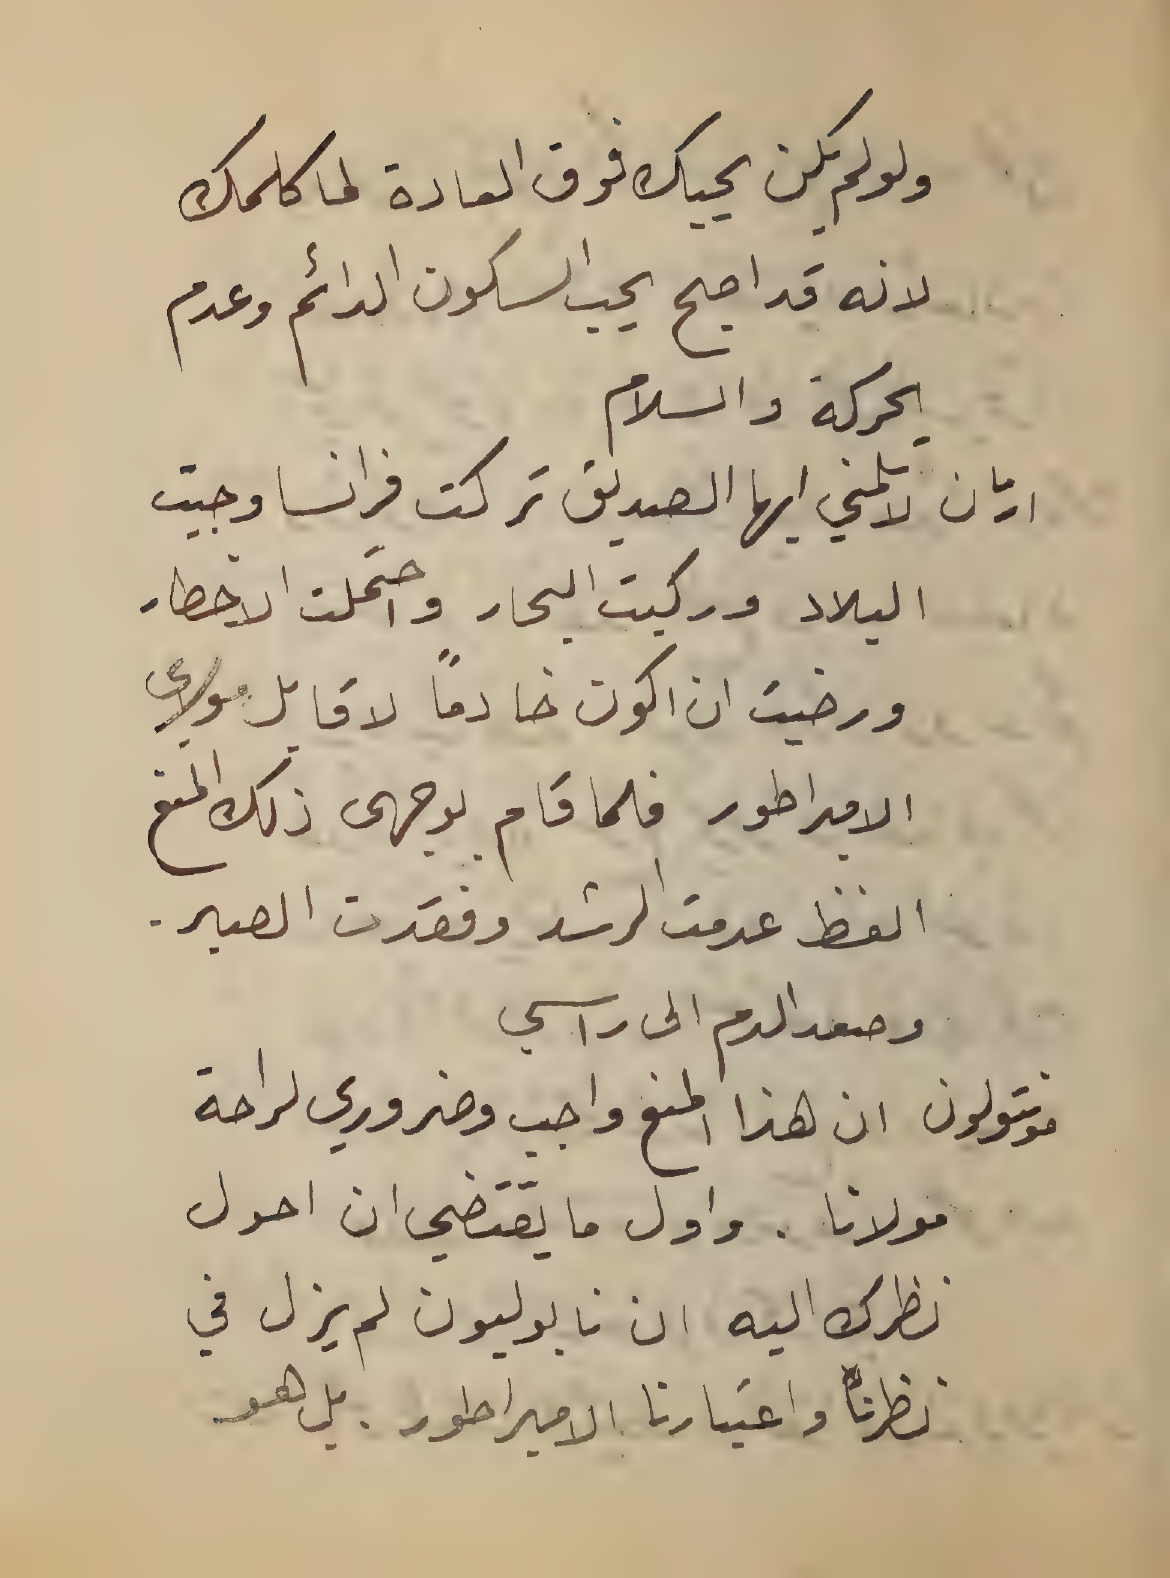 ولو لم يكن يحبك فوق العادة لما كلمك
لانه قد اصبح يحب السكون الدائم وعدم
الحركة والسلام
اريان لا تلمني ايها الصديق تركت فرانسا وجيت
البلاد وركبت البحار واحتملت الاخطار
ورضيت ان اكون خادمًا لاقابل مولاي
الامبراطور فلما قام بوجهى ذلك المنع
الفظ عدمت الرشد وفقدت الصبر .
وصعد الدم الى راسي
مونتولون ان هذا المنع واجب وضروري لراحة
مولانا . واول ما يقتضي ان احول
نظرك اليه ان نابوليون لم يزل في
نظرنا واعتبارنا الامبراطور . بل هو